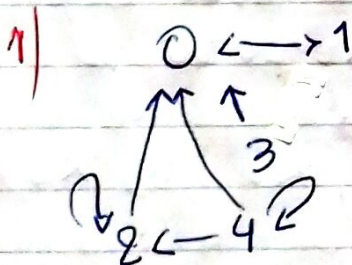 1)
0 <—> 1
3
2 <— 4